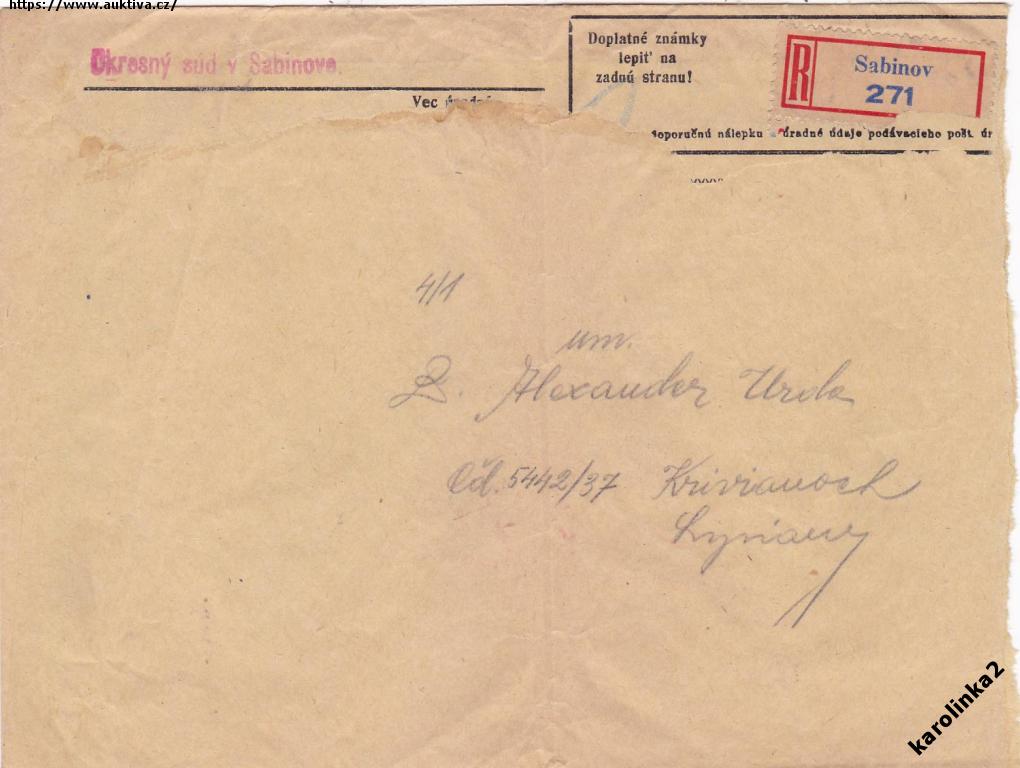 https://www.auktiva.cz/
Okresný súd v Sabinove
Vec
Doplatné známky
lepiť na
zadnú stranu!
R
Sabinov
271
doporučnú nálepku a úradné údaje podávacieho pošt. úr
4/1
um.
Alexander Urda
Čd. 5442/37 Krivianoch
Lipiany
karolinka2